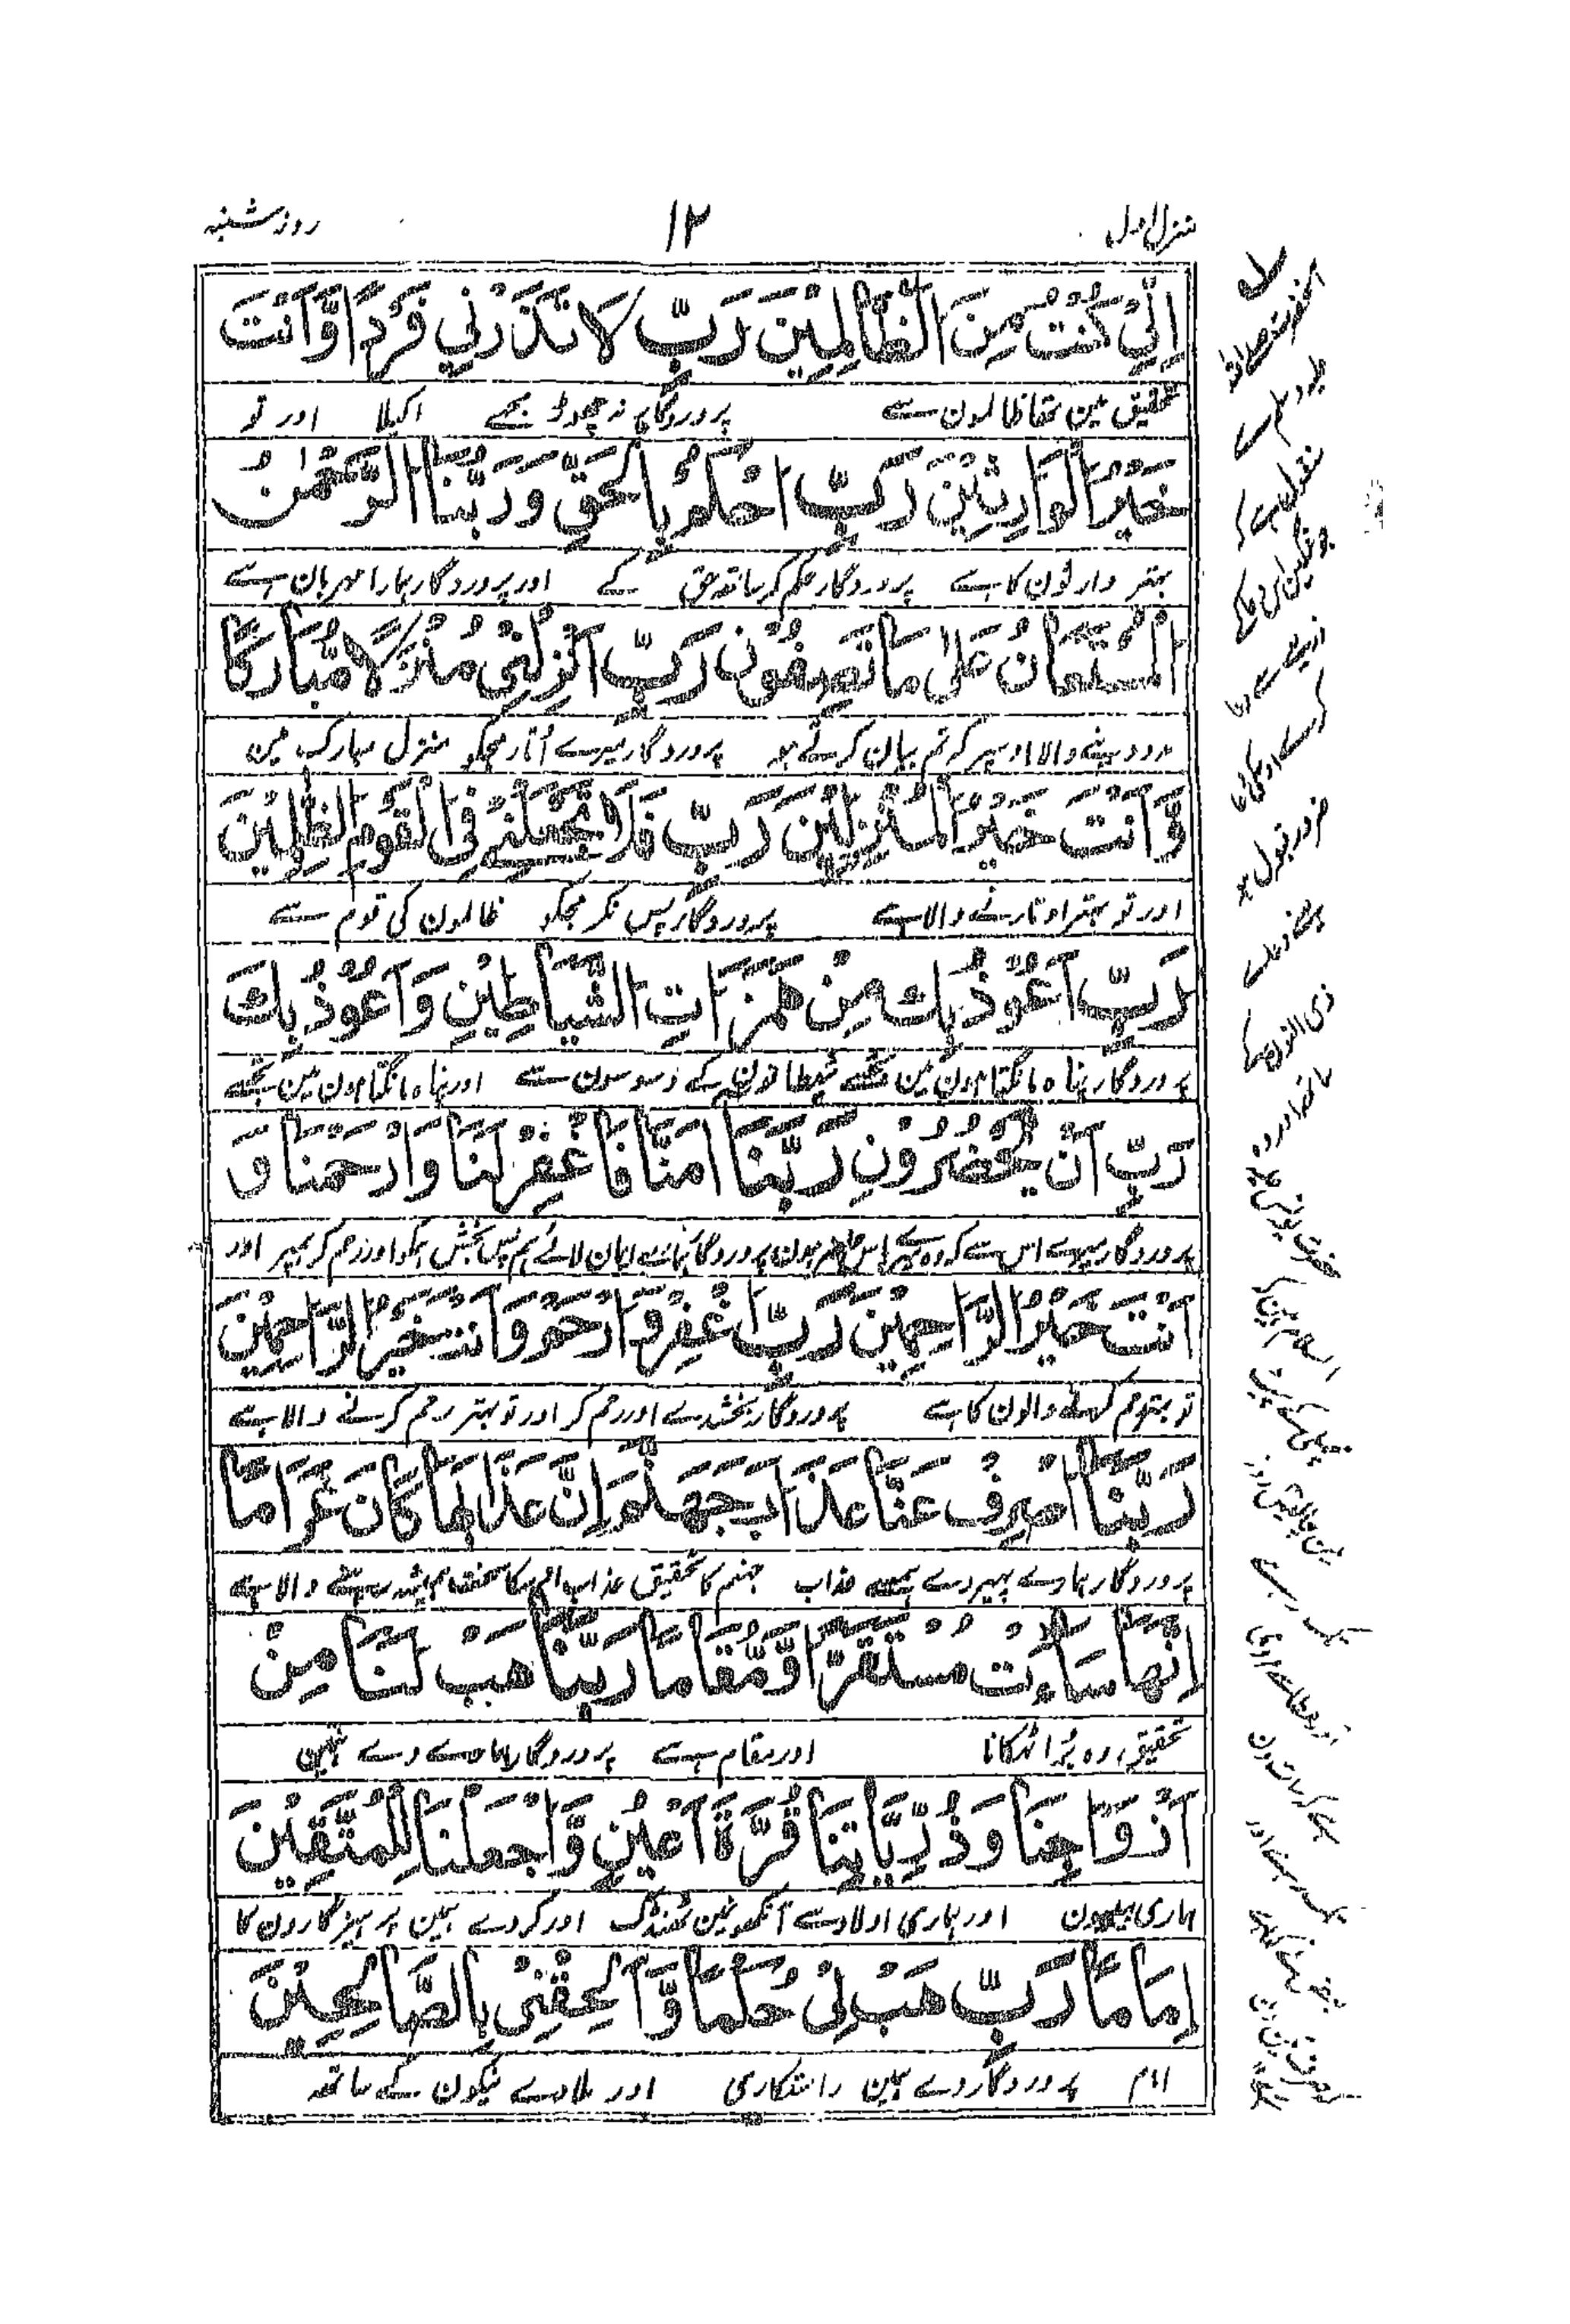 منزل اول ۱۲ روز شنبہ
اِنِّيْ كُنْتُ مِنَ الظَّالِمِيْنَ رَبِّ لَا تَذَرْنِيْ فَرْدًا وَّاَنْتَ
تحقیق مین تھا ظالمون سے پروردگار نہ چھوڑ مجھے اکیلا اور تو
خَيْرُ الْوَارِثِيْنَ رَبِّ احْكُمْ بِالْحَقِّ وَرَبُّنَا الرَّحْمٰنُ
بہتر وارثون کا ہے پروردگار حکم کر ساتھ حق کے اور پروردگار ہمارا مہربان ہے
الْمُسْتَعَانُ عَلٰى مَا تَصِفُوْنَ رَبِّ اَنْزِلْنِيْ مُنْزَلًا مُّبَارَكًا
مدد دینے والا اوسپر کہ تم بیان کرتے ہو پروردگار میرے اُتار مجکو منزل مبارک مین
وَّاَنْتَ خَيْرُ الْمُنْزِلِيْنَ رَبِّ فَلَا تَجْعَلْنِيْ فِى الْقَوْمِ الظّٰلِمِيْنَ
اور تو بہتر اوتارنے والا ہے پروردگار پس نکر مجکو ظالمون کی قوم سے
رَبِّ اَعُوْذُ بِكَ مِنْ هَمَزَاتِ الشَّيَاطِيْنِ وَاَعُوْذُ بِكَ
پروردگار پناہ مانگتا ہون مین تجھسے شیطانون کے وسوسون سے اور پناہ مانگتا ہون مین تجھسے
رَبِّ اَنْ يَّحْضُرُوْنِ رَبَّنَا اٰمَنَّا فَاغْفِرْ لَنَا وَارْحَمْنَا وَ
پروردگار میرے اس سے کہ وہ میرے پاس حاضر ہون پروردگار ہمارے ایمان لائے ہم پس بخش ہمکو اور رحم کر ہمپر اور
اَنْتَ خَيْرُ الرَّاحِمِيْنَ رَبِّ اغْفِرْ وَارْحَمْ وَاَنْتَ خَيْرُ الرَّاحِمِيْنَ
تو بہتر رحم کرنے والون کا ہے پروردگار بخشدے اور رحم کر اور تو بہتر رحم کرنے والا ہے
رَبَّنَا اصْرِفْ عَنَّا عَذَابَ جَهَنَّمَ اِنَّ عَذَابَهَا كَانَ غَرَامًا
پروردگار ہمارے پھیر دے ہمسے عذاب جہنم کا تحقیق عذاب اوسکا سخت ہمیشہ رہنے والا ہے
اِنَّهَا سَاءَتْ مُسْتَقَرًّا وَّمُقَامًا رَبَّنَا هَبْ لَنَا مِنْ
تحقیق وہ بُرا ٹھکانا اور مقام ہے پروردگار ہمارے دے ہمین
اَزْوَاجِنَا وَذُرِّيَّاتِنَا قُرَّةَ اَعْيُنٍ وَّاجْعَلْنَا لِلْمُتَّقِيْنَ
ہماری بیبیون اور ہماری اولاد سے آنکھونمین ٹھنڈک اور کر دے ہمین پرہیزگارون کا
اِمَامًا رَبِّ هَبْ لِيْ حُكْمًا وَّاَلْحِقْنِيْ بِالصَّالِحِيْنَ
امام پروردگار دے ہمین راستکاری اور ملادے نیکون کے ساتھ
آنحضرت صلے اللہ
علیہ وسلم سے
منقول ہے کہ
جو غمگین اس دعا کے
ذریعے سے دعا
کرے اوسکی دعا
ضرور قبول ہو
یعنے دعاے
ذی النون کے
ساتھ اور وہ